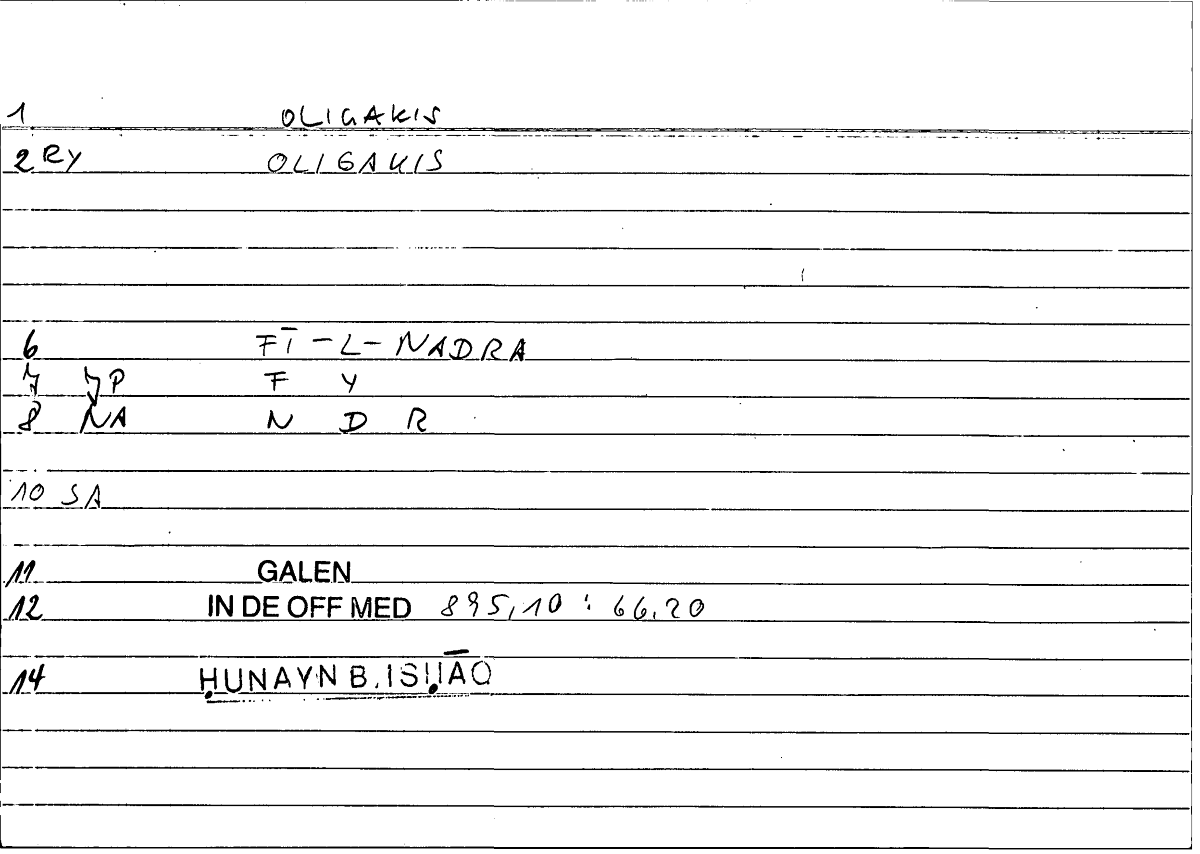 1 OLIGAKIS
2 RY OLIGAKIS
6 FĪ-L-NADRA
7 JP F Y
8 NA N D R
10 SA
11 GALEN
12 IN DE OFF MED 895,10 : 66.20
14 ḤUNAYN B. ISḤĀQ